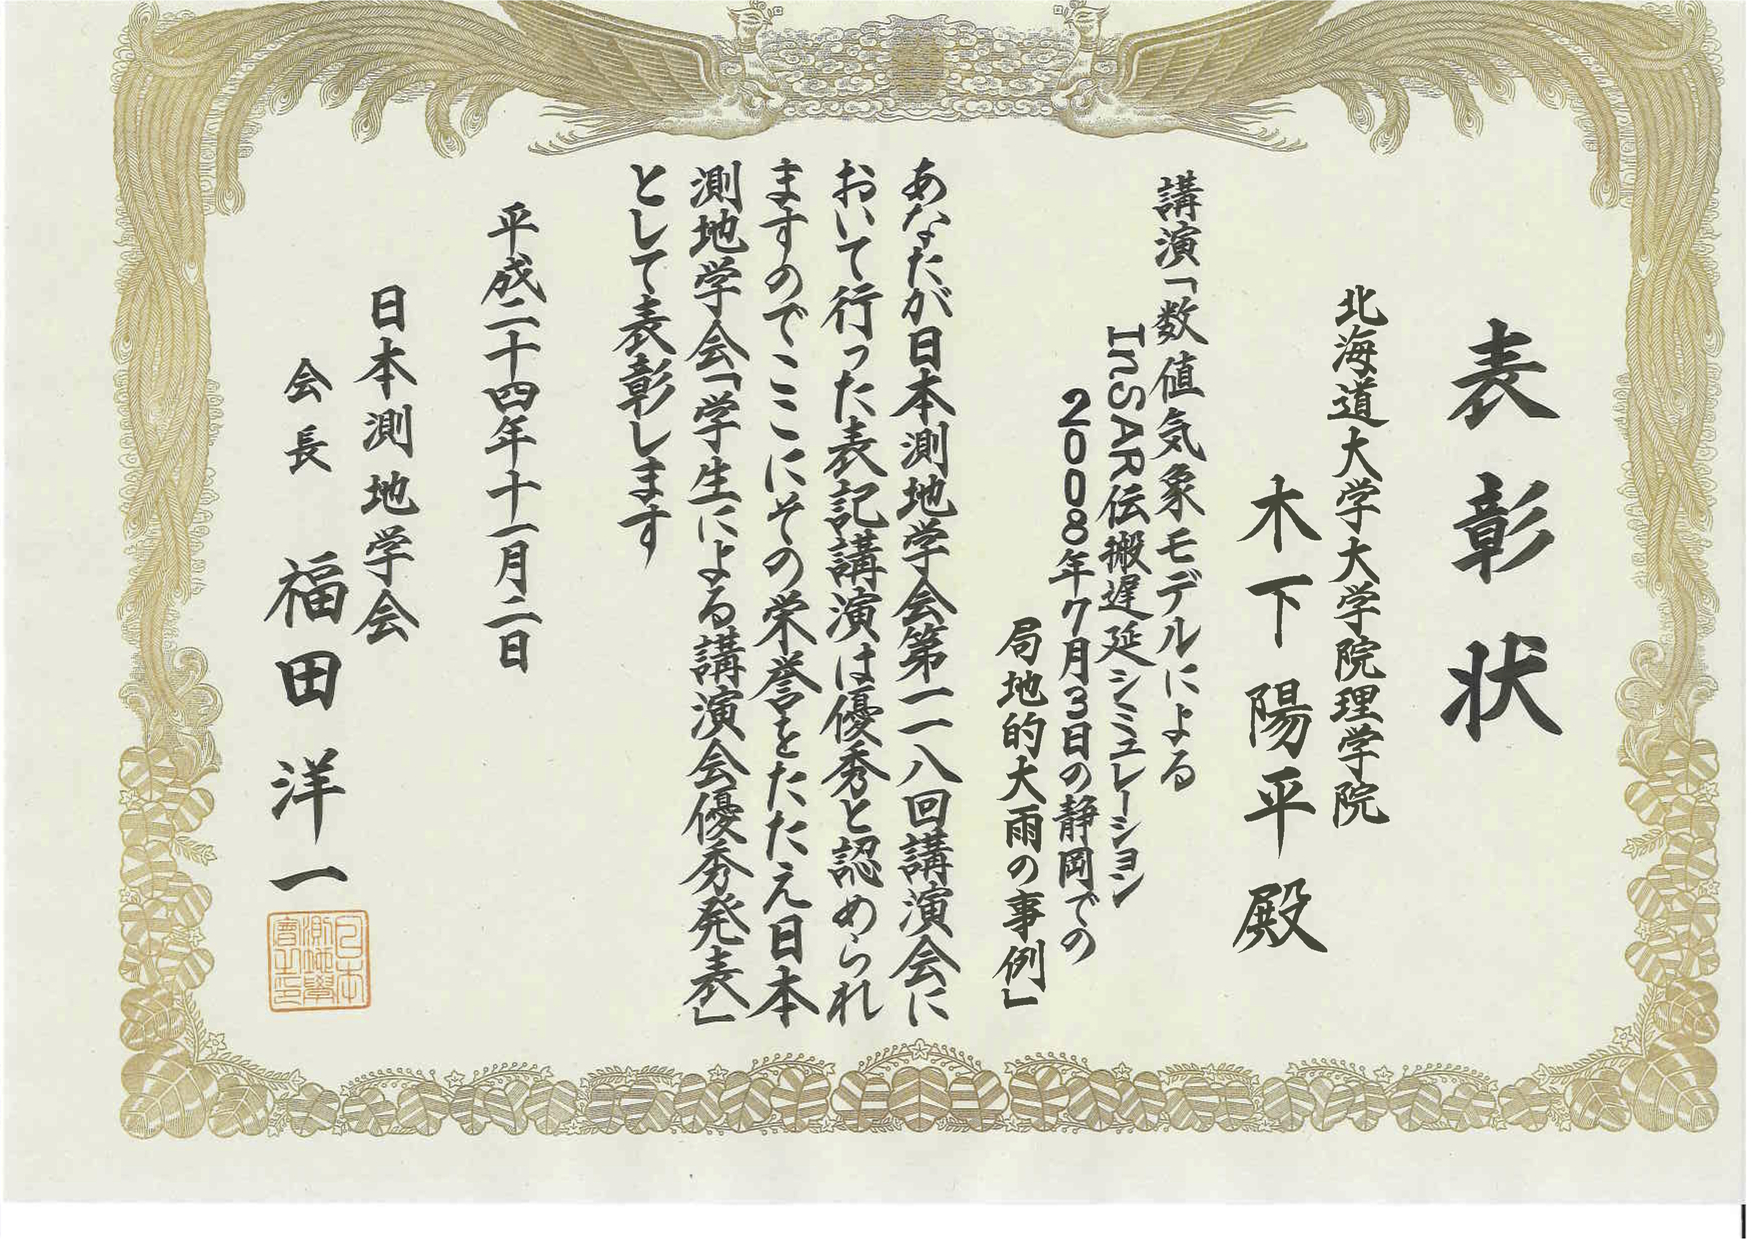 表彰状
北海道大学大学院理学院
木下陽平殿
講演「数値気象モデルによる
InSAR伝搬遅延シミュレーション
2008年7月3日の静岡での
局地的大雨の事例」
あなたが日本測地学会第一一八回講演会に
おいて行った表記講演は優秀と認められ
ますのでここにその栄誉をたたえ日本
測地学会「学生による講演会優秀発表」
として表彰します
平成二十四年十一月二日
日本測地学会
会長 福田洋一
日本
測地學
會之印